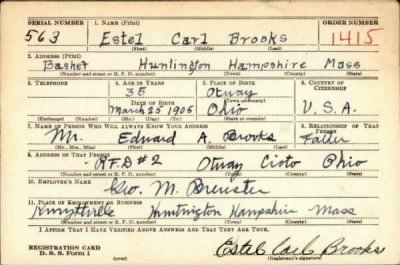 SERIAL NUMBER 1. NAME (Print) ORDER NUMBER
563 Estel Carl Brooks 1415
(First) (Middle) (Last)
2. ADDRESS (Print)
Basket Huntington Hampshire Mass
(Number and street or R. F. D. number) (Town) (County) (State)
3. TELEPHONE 4. AGE IN YEARS 5. PLACE OF BIRTH 6. COUNTRY OF CITIZENSHIP
35 Otway
DATE OF BIRTH (Town or county)
March 25 1905 Ohio U.S.A.
(Mo.) (Day) (Yr.) (State or country)
7. NAME OF PERSON WHO WILL ALWAYS KNOW YOUR ADDRESS 8. RELATIONSHIP OF THAT PERSON
Mr. Edward A. Brooks Father
(Mr., Mrs., Miss) (First) (Middle) (Last)
9. ADDRESS OF THAT PERSON
R.F.D #2 Otway Cioto Ohio
(Number and street or R. F. D. number) (Town) (County) (State)
10. EMPLOYER'S NAME
Geo. M. Brewster
11. PLACE OF EMPLOYMENT OR BUSINESS
Huntington Hampshire Mass
(Number and street or R. F. D. number) (Town) (County) (State)
I AFFIRM THAT I HAVE VERIFIED ABOVE ANSWERS AND THAT THEY ARE TRUE.
REGISTRATION CARD
D. S. S. Form 1 Estel Carl Brooks
(over) (Registrant's signature)